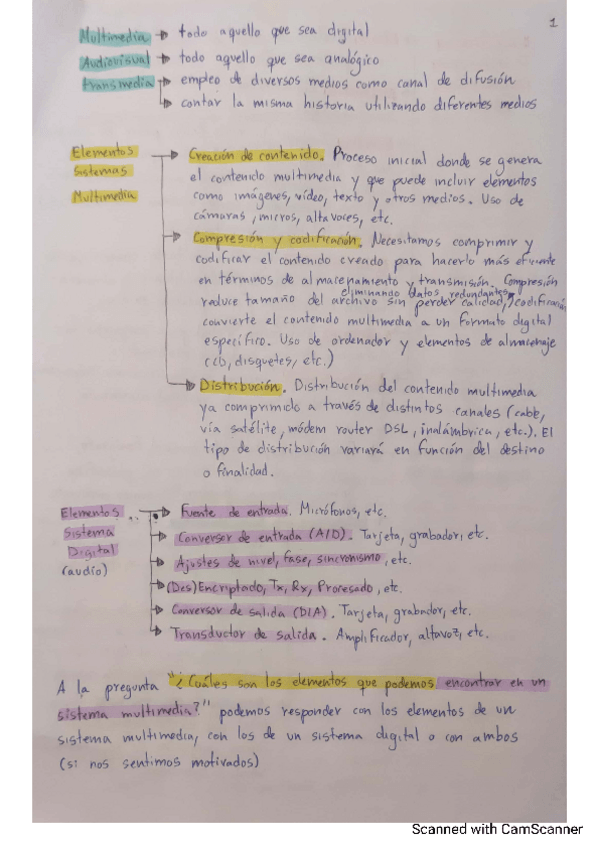 1
Multimedia → todo aquello que sea digital
Audiovisual → todo aquello que sea analógico
transmedia → empleo de diversos medios como canal de difusión
→ contar la misma historia utilizando diferentes medios
Elementos → Creación de contenido. Proceso inicial donde se genera
Sistemas el contenido multimedia y que puede incluir elementos
Multimedia como imágenes, vídeo, texto y otros medios. Uso de
cámaras, micros, altavoces, etc.
→ Compresión y codificación. Necesitamos comprimir y
codificar el contenido creado para hacerlo más eficiente
en términos de almacenamiento y transmisión. Compresión
eliminando datos redundantes
reduce tamaño del archivo sin perder calidad, codificación
convierte el contenido multimedia a un formato digital
específico. Uso de ordenador y elementos de almacenaje
(CD, disquetes, etc.)
→ Distribución. Distribución del contenido multimedia
ya comprimido a través de distintos canales (cable,
vía satélite, módem router DSL, inalámbrica, etc.). El
tipo de distribución variará en función del destino
o finalidad.
Elementos → Fuente de entrada. Micrófonos, etc.
Sistema → Conversor de entrada (A/D). Tarjeta, grabador, etc.
Digital → Ajustes de nivel, fase, sincronismo, etc.
(audio) → (Des)Encriptado, Tx, Rx, Procesado, etc.
→ Conversor de salida (D/A). Tarjeta, grabador, etc.
→ Transductor de salida. Amplificador, altavoz, etc.
A la pregunta "¿Cuáles son los elementos que podemos encontrar en un
sistema multimedia?" podemos responder con los elementos de un
sistema multimedia, con los de un sistema digital o con ambos
(si nos sentimos motivados)
Scanned with CamScanner